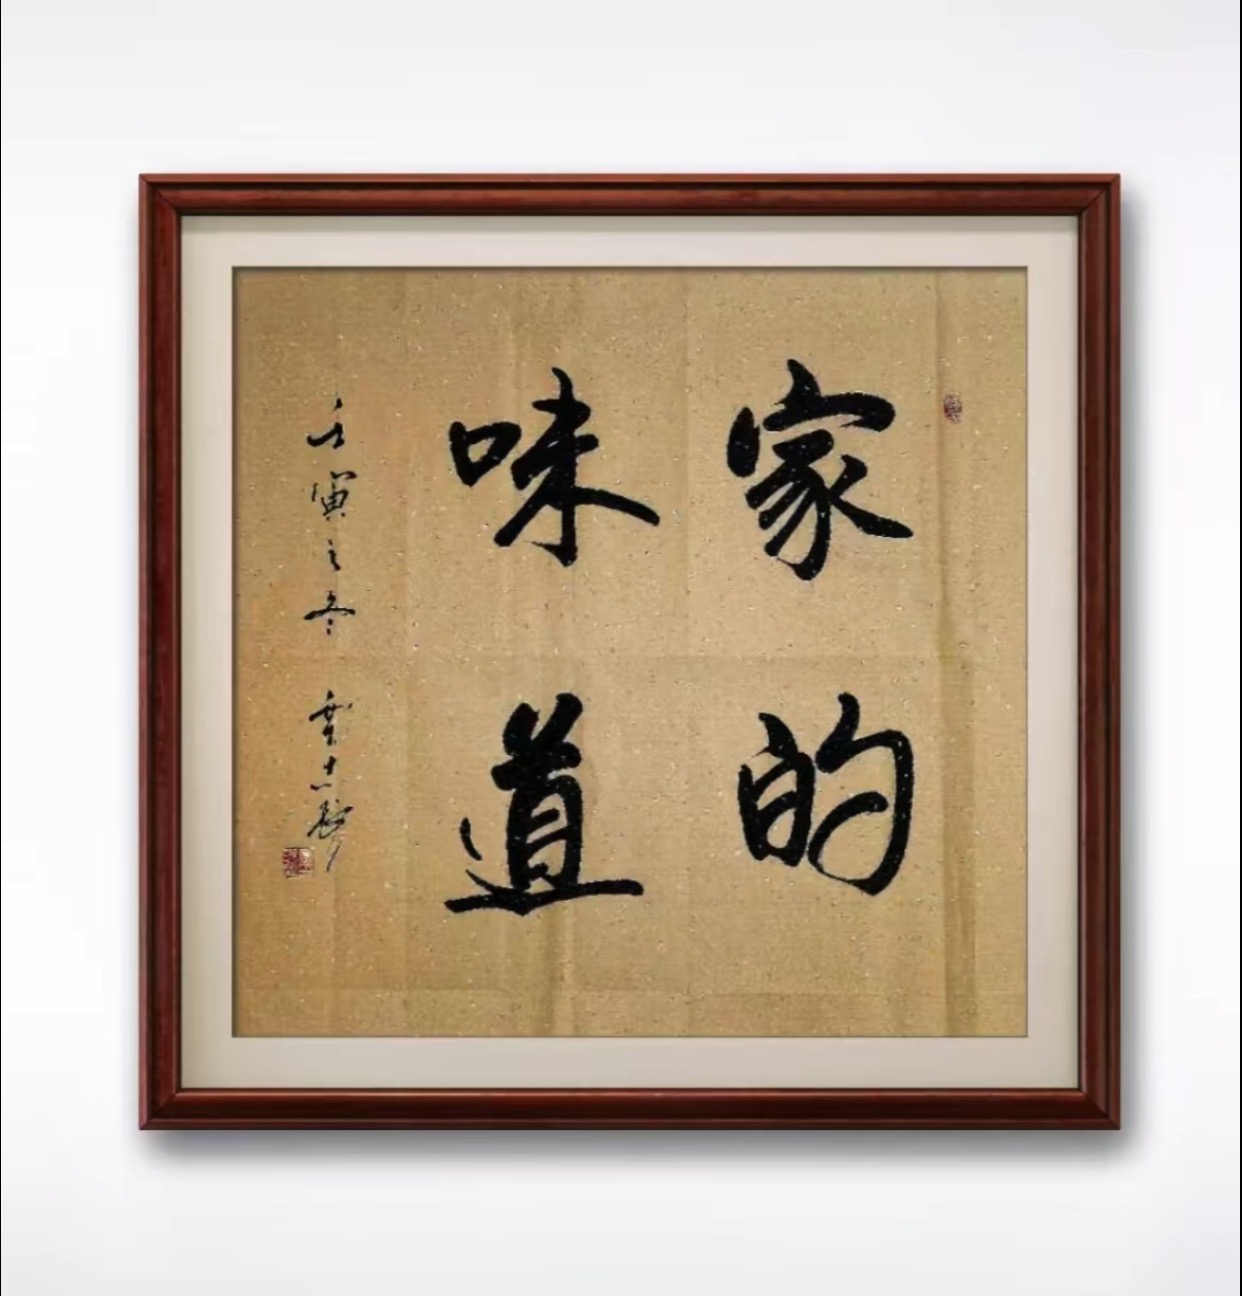 家的
味道
壬寅之冬